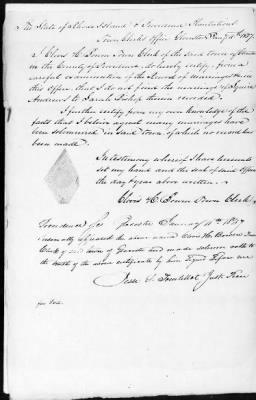 The State of Rhode Island & Providence Plantations
Town Clerk's Office, Glocester Jany 1837.
I, Clovis H. Bowen Town Clerk of the Town of Glocester
in the County of Providence, do hereby certify, from a
careful examination of the Record of marriages in
this Office, that I do not find the marriage of Squire
Andrews to Sarah thereon recorded
I further certify from my own knowledge of the
facts that I believe a great many marriages have
been solemnized in said town of which no record has
been made.
In testimony whereof I have hereunto
set my hand and the seal of said Office
the day & year above written.
Clovis H. Bowen Town Clerk
Providence Glocester January 1837
personally appeared the above named Clovis H. Bowen Town
Clerk of said town of Glocester and made solemn oath to
the truth of the above certificate by him signed before me
Jesse S. Just Peace